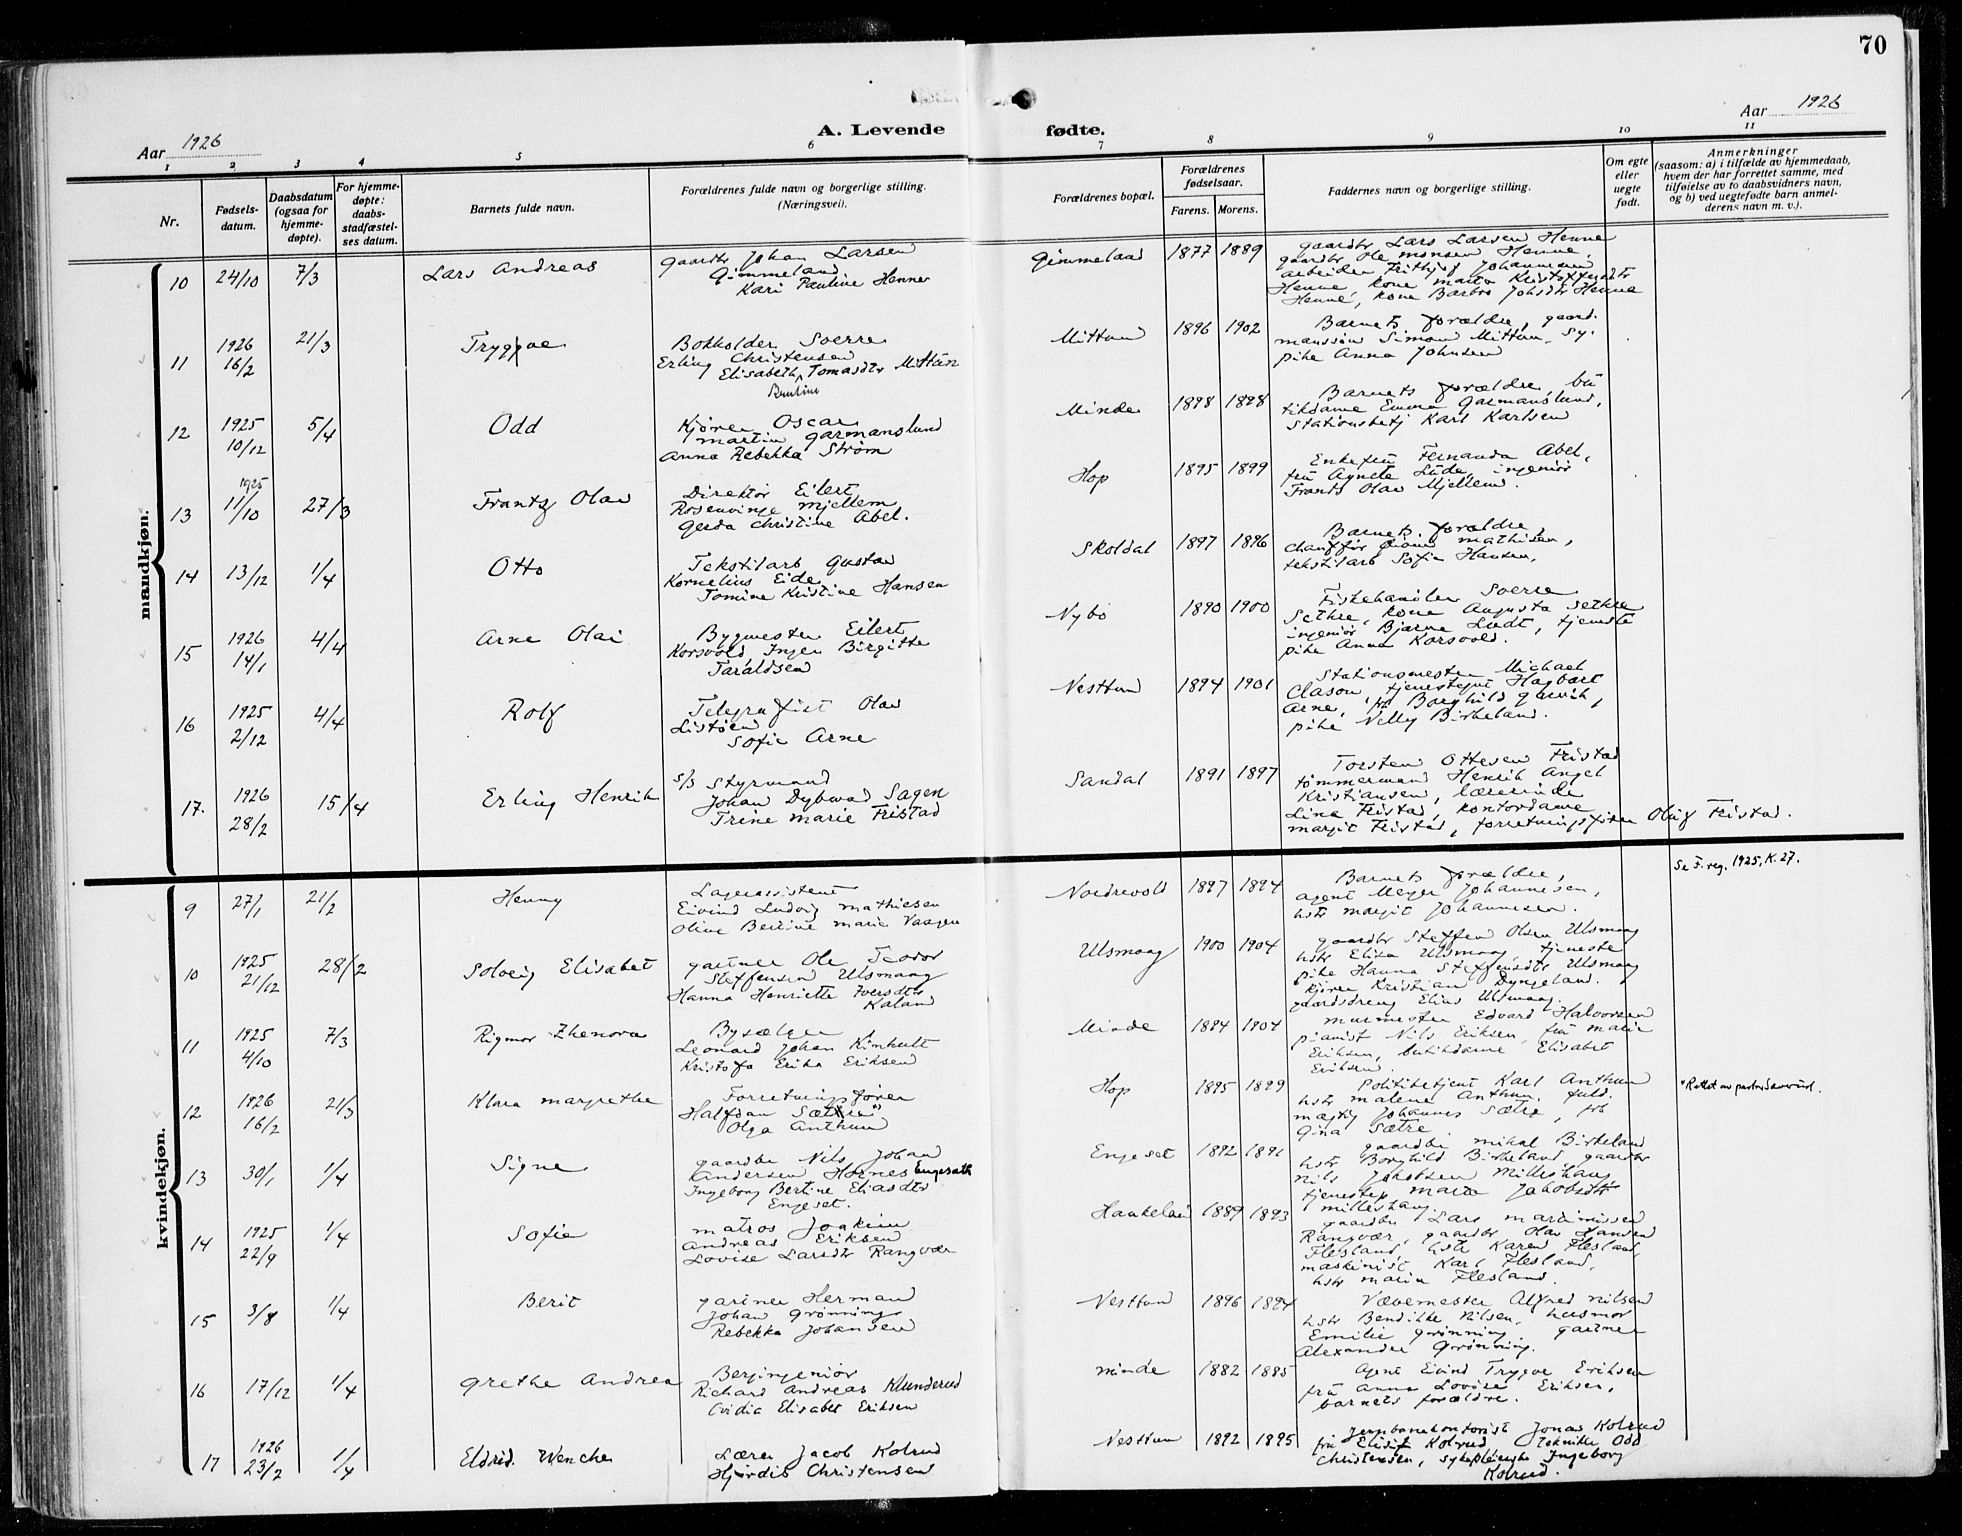 70
Aar 1926
A. Levende fødte.
Aar 1926
1 2 3 4 5 6 7 8 9 10 11
Nr.
Fødsels-
datum.
Daabsdatum
(ogsaa for
hjemme-
døpte).
For hjemme-
døpte:
daabs-
stadfæstel-
ses datum.
Barnets fulde navn.
Forældrenes fulde navn og borgerlige stilling.
(Næringsvei).
Forældrenes bopæl.
Forældrenes
fødselsaar.
Farens. Morens.
Faddernes navn og borgerlige stilling.
Om egte
eller
uegte
født.
Anmerkninger
(saasom: a) i tilfælde av hjemmedaab,
hvem der har forrettet samme, med
tilføielse av to daabsvidners navn,
og b) ved uegtefødte barn anmel-
derens navn m. v.).
mandkjøn.
10 24/10 7/3 Lars Andreas
gaardbr Johan Larsen
Gimmeland
Kari Pauline Henne
Gimmeland 1877 1889
gaardbr Lars Larsen Henne
gaardbr Ole Monsen Henne,
arbeider Frithjof Johannesen
Henne, kone Marta Kristoffersdtr
Henne, kone Barbro Johsdtr Henne
11 1926 16/2 21/3 Tryggve
Bokholder Sverre
Erling Christensen
Elisabeth Tomasdtr Mittun
Bentine
Mittun 1896 1902
Barnets forældre, gaard-
manssøn Simon Mittun, sy-
pike Anna Johnsen
12 1925 10/12 5/4 Odd
Kjører Oscar
Martin Garmanslund
Anna Rebekka Strøm
Minde 1898 1898
Barnets forældre, bu
tikdame Emma Garmanslund,
Stationsbetj Karl Karlsen
13 1925 11/10 27/3 Frantz Olav
Direktør Eilert
Rosenvinge Mjellem
Gerda Christine Abel.
Hop 1895 1899
Enkefru Fernanda Abel,
fru Agnete Lude, ingeniør
Frants Olav Mjellem.
14 13/12 1/4 Otto
Tekstilarb Gustav
Kornelius Eide
Tomine Kristine Hansen
Skoldal 1897 1896
Barnets forældre,
chauffør Mathisen,
tekstilarb Sofie Hansen.
15 1926 14/1 4/4 Arne Olai
Bygmester Eilert
Korsvold Inger Birgitte
Taraldsen
Nybø 1890 1900
Fiskehandler Sverre
Sethre, kone Augusta Sethre
ingeniør Bjarne Ludt, tjeneste
pike Anna Korsvold.
16 1925 2/12 4/4 Rolf
Telegrafist Olav
Listøen
Sofie Arne
Nesttun 1894 1901
Stationsmester Michael
Clason, tjenestegut Hagbart
Arne, Borghild
pike Nelly Birkeland.
17. 1926 28/2 15/4 Erling Henrik
s/s Styrmand
Johan Dybwad Sagen
Trine Marie Fristad
Sandal 1891 1897
Torsten Ottesen Fristad
tømmermand Henrik Angel
Kristiansen, lærerinde
Lina Fristad, kontordame
Margit Fristad, forretningsfører Oluf Fristad.
kvindekjøn.
9 27/1 21/2 Henny
Lagerassistent
Eivind Ludvig Mathiesen
Oline Bertine Marie Vaagen
Nordrevold 1897 1894
Barnets forældre,
agent Meyer Johannesen,
hstr Margit Johannesen.
Se F. reg. 1925, K. 27.
10 1925 21/12 28/2 Solveig Elisabet
gartner Ole Teodor
Steffensen Ulsmaag
Hanna Henriette Iversdtr
Kaland
Ulsmaag 1900 1904
gaardbr Steffen Olsen Ulsmaag
hstr Elisa Ulsmaag, tjeneste
pike Hanna Steffensdtr Ulsmaag
kjører Kristian Dyngeland.
gaardsdreng Elias Ulsmaag.
11 1925 4/10 7/3 Rigmor Ehenora
Bysælger
Leonard Johan Kimhult
Kristofa Erika Eriksen
Minde 1894 1904
Murmester Edvard Halvorsen
pianist Nils Eriksen, fru Marie
Eriksen, butikdame Elisabet
Eriksen.
12 1926 16/2 21/3 Klara Margrethe
Forretningsfører
Halfdan Sætre"
Olga Anthun
Hop 1895 1899
Politibetjent Karl Anthun
hstr Malene Anthun, fuld-
mægtig Johannes Sætre, frk
Gina Sætre
"Rettet av
13 30/1 1/4 Signe
gaardbr Nils Johan
Andersen Hornes Engesæth
Ingeborg Bertine Eliasdtr
Engeset.
Engeset 1892 1891
gaardbr Mikal Birkeland
hstr Borghild Birkeland gaardbr
Nils Jakobsen Milleshaug
tjenestep. Marta Jakobsdtr
Milleshaug.
14 1925 22/9 1/4 Sofie
Matros Joakim
Andreas Eriksen
Lovise Larsdtr Rangvær
Haukeland 1889 1893
gaardbr Lars Martinussen
Rangvær, gaardbr Olav Hansen
Flesland, hstr Karen Flesland,
maskinist Karl Flesland,
hstr Marie Flesland.
15 3/8 1/4 Berit
gartner Herman
Johan Grønning
Rebekka Johansen
Nesttun 1896 1894
Vævemester Alfred Nilsen
hstr Bendikke Nilsen, husmor
Emilie Grønning, gartner
Alexander Grønning.
16 17/12 1/4 Grethe Andrea
Bergingeniør
Richard Andreas Klunderud
Ovidia Elisabet Eriksen
Minde 1882 1885
Agent Eivind Trygve Eriksen
fru Anna Lovise Eriksen,
barnets forældre.
17 1926 23/2 1/4 Eldrid. Wenche
Lærer Jacob Kolrud
Hjørdis Christensen
Nesttun 1892 1895
Jernbanekontorist Jonas Kolrud
fru Elisif Kolrud, tekniker Odd
Christensen, sykepleierske Ingeborg
Kolrud.